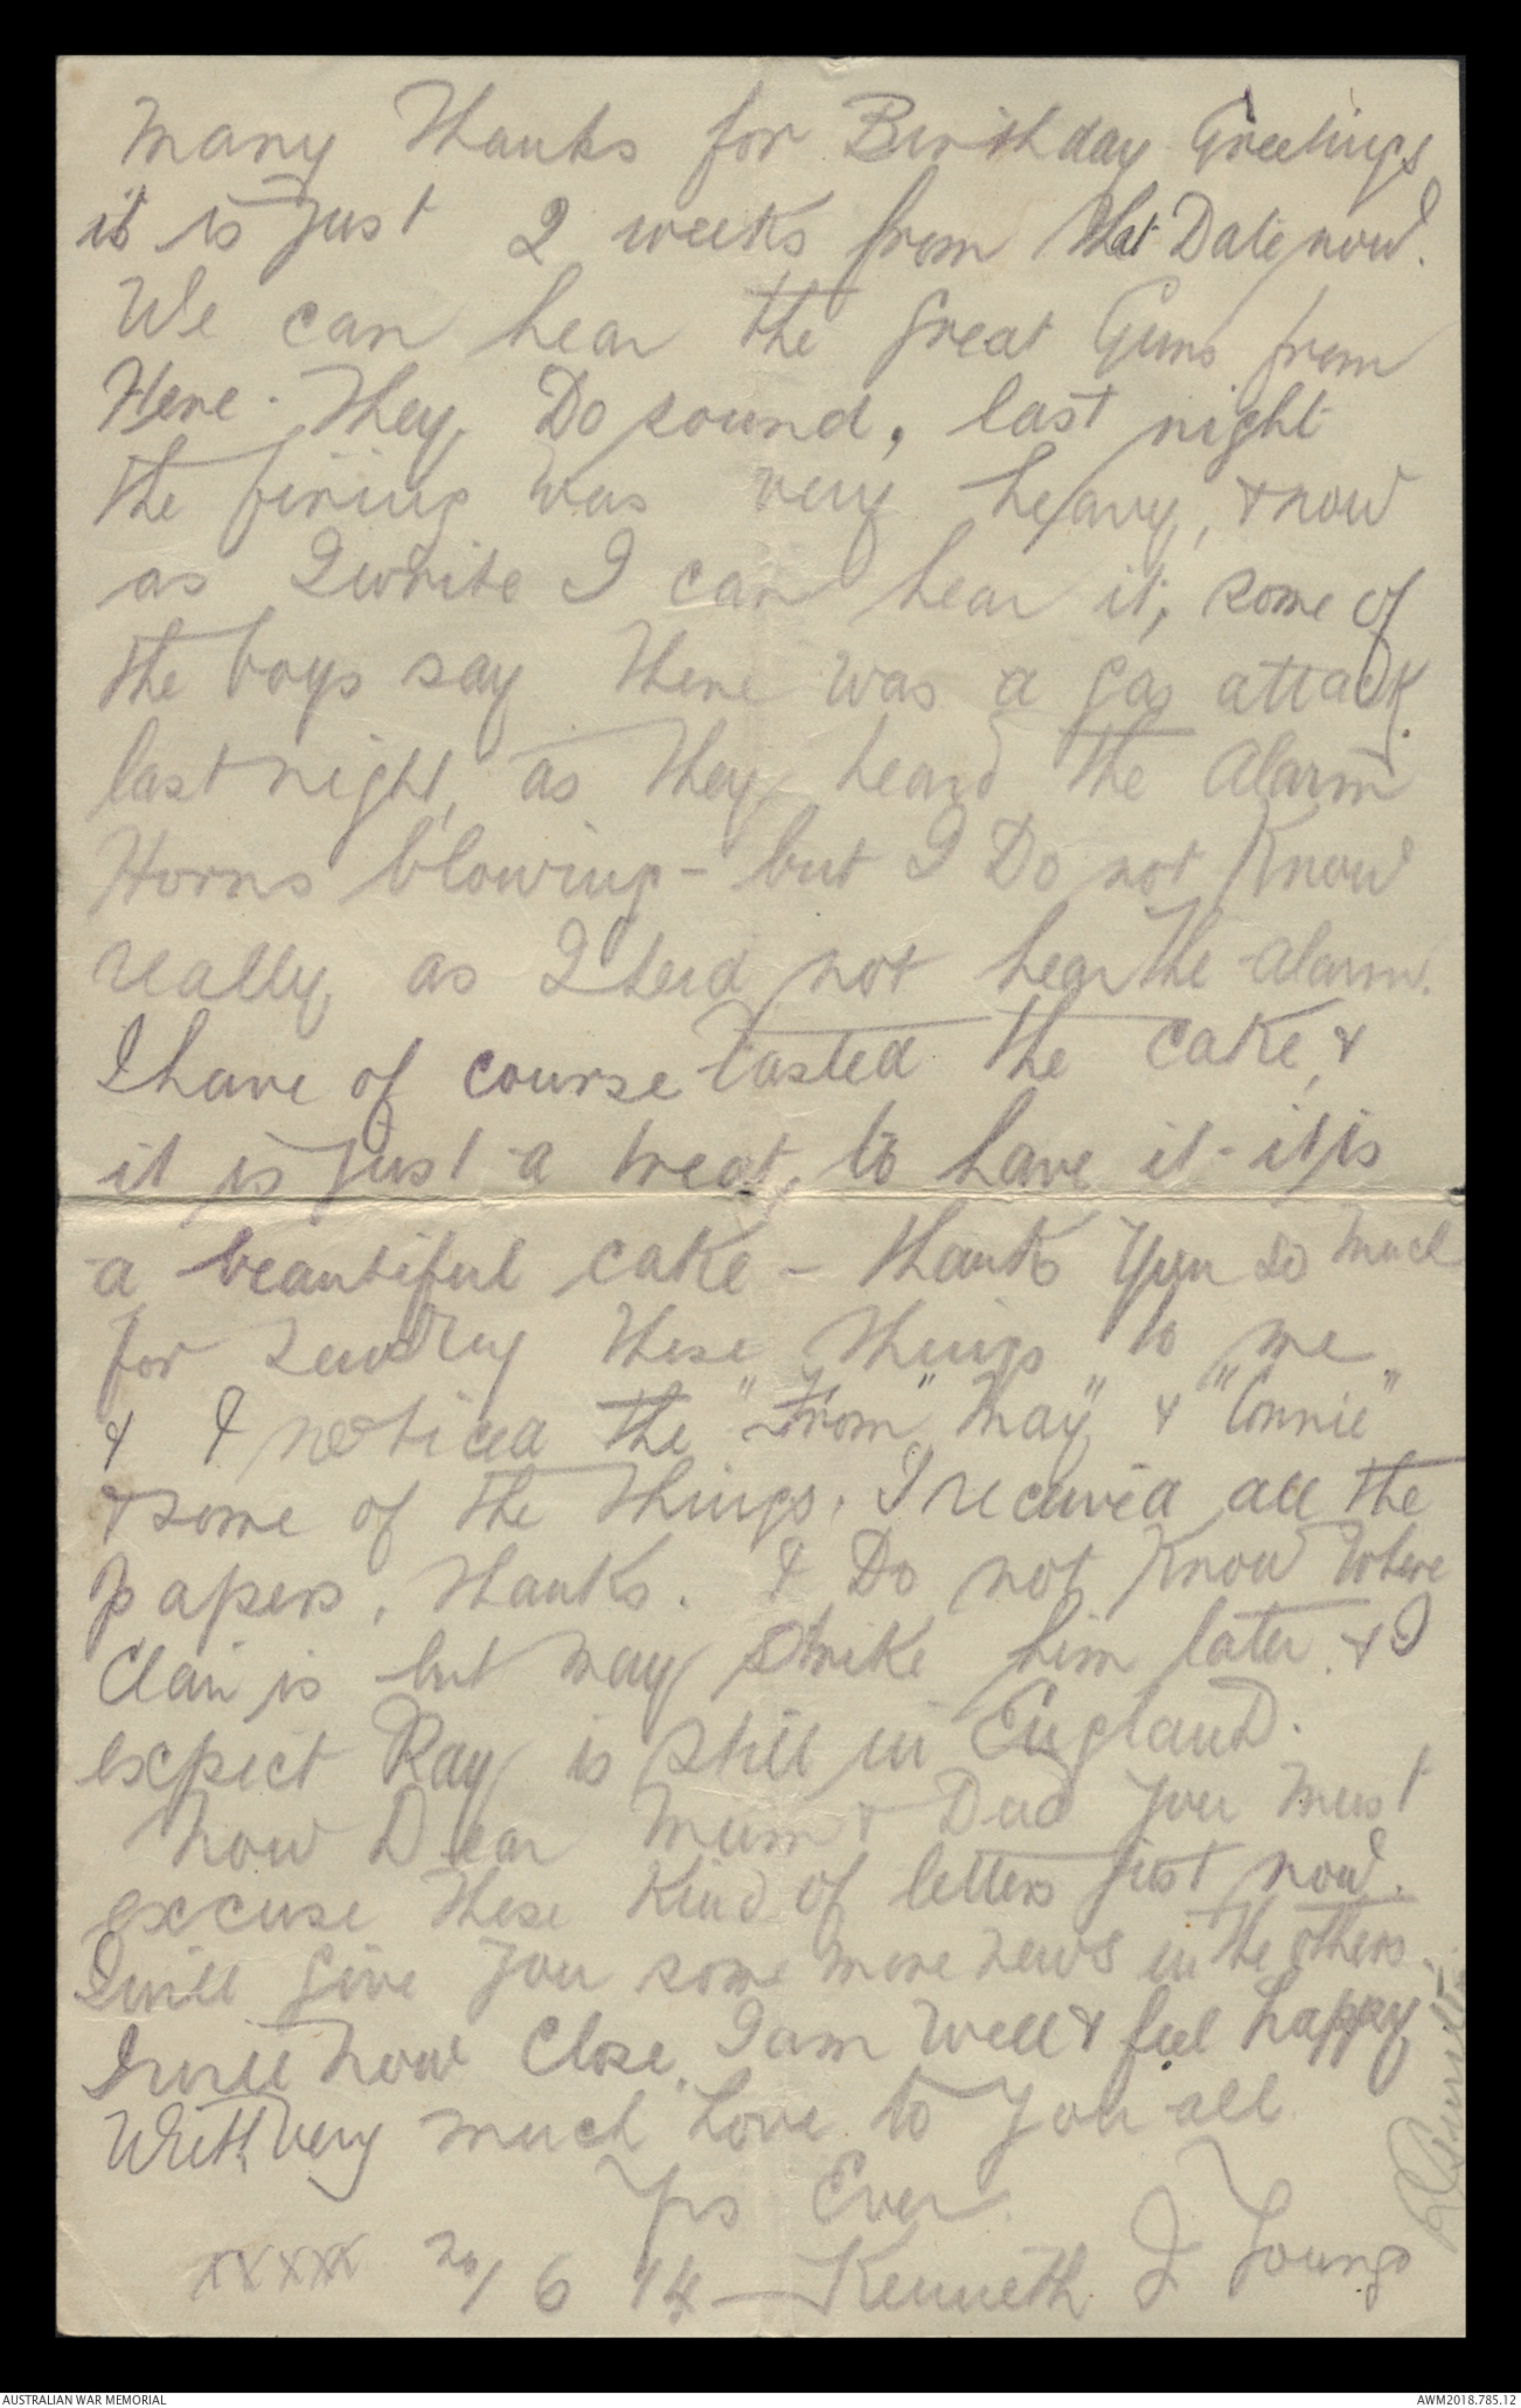 Many Thanks for Birthday Greetings
it is just 2 weeks from that Date now.
We can hear the great Guns from
Here. They Do sound, last night
the firing was very heavy, & now
as I write I can hear it, some of
the boys say there was a gas attack
last night, as they heard the Alarm
Horns blowing - but I Do not Know
really, as I did not hear the alarm.
I have of course tasted the cake, &
it is just a treat, to have it - it is
a beautiful cake - thanks you so much
for sending these things to me
& I noticed the "From" "May" & "Connie"
& some of the things. I received all the
papers, thanks. I Do not Know Where
Clair is but may strike him later. & I
expect Ray is still in England.
Now Dear Mum & Dad you must
excuse these Kind of letters just now.
I will give you some more news in the others.
I will now Close. I am Well & feel happy
With very much Love to you all
Yrs Ever
xxxxx 20/6 Kenneth J Young
AUSTRALIAN WAR MEMORIAL
AWM2018.785.12